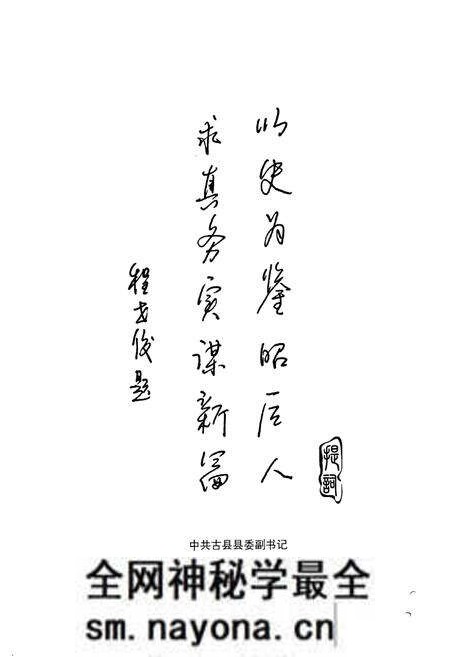 以史为鉴昭后人
求真务实谋新篇
程俊题
提詞
中共古县县委副书记
全网神秘学最全
sm.nayona.cn